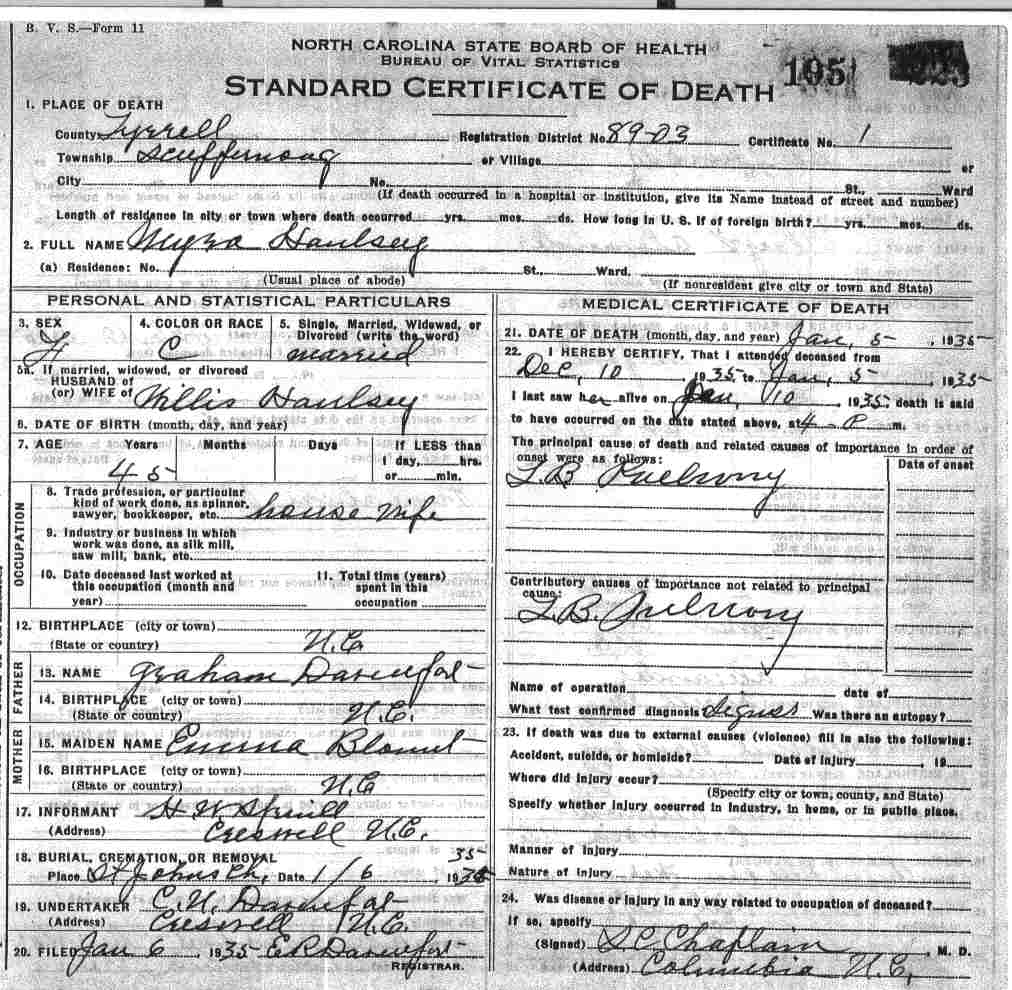 B. V. S.—Form 11
NORTH CAROLINA STATE BOARD OF HEALTH
BUREAU OF VITAL STATISTICS
STANDARD CERTIFICATE OF DEATH
195
1. PLACE OF DEATH
County Tyrrell Registration District No. 89-03 Certificate No. 1
Township Scuffernong or Village or
City No. St., Ward
(If death occurred in a hospital or institution, give its Name instead of street and number)
Length of residence in city or town where death occurred yrs. mos. ds. How long in U. S. if of foreign birth? yrs. mos. ds.
2. FULL NAME Myra Haulsey
(a) Residence: No. St., Ward.
(Usual place of abode) (If nonresident give city or town and State)
PERSONAL AND STATISTICAL PARTICULARS
3. SEX 4. COLOR OR RACE 5. Single, Married, Widowed, or
Divorced (write the word)
F C married
5a. If married, widowed, or divorced
HUSBAND of
(or) WIFE of Willis Haulsey
6. DATE OF BIRTH (month, day, and year)
7. AGE Years Months Days If LESS than
1 day, hrs.
45 or min.
OCCUPATION
8. Trade profession, or particular
kind of work done, as spinner,
sawyer, bookkeeper, etc. house wife
9. Industry or business in which
work was done, as silk mill,
saw mill, bank, etc.
10. Date deceased last worked at
this occupation (month and
year)
11. Total time (years)
spent in this
occupation
12. BIRTHPLACE (city or town)
(State or country) N.C.
FATHER
13. NAME Graham Davenport
14. BIRTHPLACE (city or town)
(State or country) N.C.
MOTHER
15. MAIDEN NAME Emma Blount
16. BIRTHPLACE (city or town)
(State or country) N.C
17. INFORMANT H W Spruill
(Address) Creswell N.C.
18. BURIAL, CREMATION, OR REMOVAL 35
Place St Johns Ch, Date 1/6 193
19. UNDERTAKER C. N. Davenport
(Address) Creswell N.C.
20. FILED Jan 6 1935 E R Davenport
REGISTRAR.
MEDICAL CERTIFICATE OF DEATH
21. DATE OF DEATH (month, day, and year) Jan, 5, 1935
22. I HEREBY CERTIFY, That I attended deceased from
Dec, 10, 1935, to Jan, 5, 1935
I last saw her alive on Jan, 10 1935; death is said
to have occurred on the date stated above, at 4-P m.
The principal cause of death and related causes of importance in order of
onset were as follows: Date of onset
T.B.
Contributory causes of importance not related to principal
cause:
T.B.
Name of operation date of
What test confirmed diagnosis Signes Was there an autopsy?
23. If death was due to external causes (violence) fill in also the following:
Accident, suicide, or homicide? Date of injury , 19
Where did injury occur?
(Specify city or town, county, and State)
Specify whether injury occurred in industry, in home, or in public place.
Manner of injury
Nature of injury
24. Was disease or injury in any way related to occupation of deceased?
If so, specify
(Signed) S C Chaplain, M. D.
(Address) Columbia N.C,